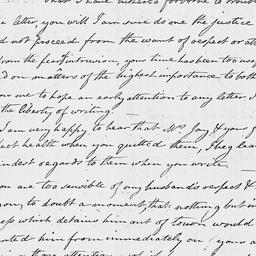 That I have hitherto forborne to trouble
a letter, you will I am sure do me the justice
d not proceed from the want of respect or att
from the fear of intrusion, your time has been too usef
d on matters of the highest importance to both
ow me to hope an early attention to any letter I
the liberty of writing. —
I am very happy to hear that Mrs Jay & your f
fect health when you quitted them, I beg leav
indest regards to them when you write —
ou are too sensible of my husbands respect &
you, to doubt a moment, that nothing but in
ess which detains him out of town would
nted him from immediately on your a